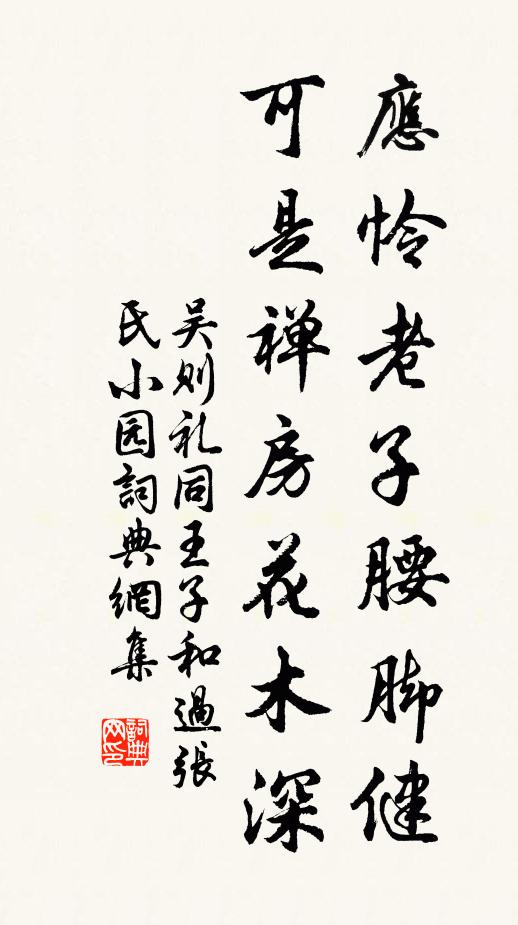 應怜老子腰脚健
可是禅房花木深
吴则礼同王子和過張
氏小园詞典網集
詞典
网印